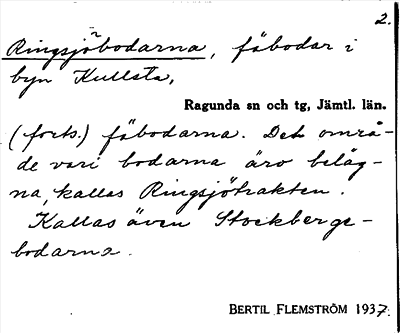 2.
Ringsjöbodarna, fäbodar i
byn Kullsta,
Ragunda sn och tg, Jämtl. län.
(forts.) fäbodarna. Det områ-
de vari bodarna äro beläg-
na, kallas Ringsjötrakten.
Kallas även Stockbergs-
bodarna.
BERTIL FLEMSTRÖM 1937.